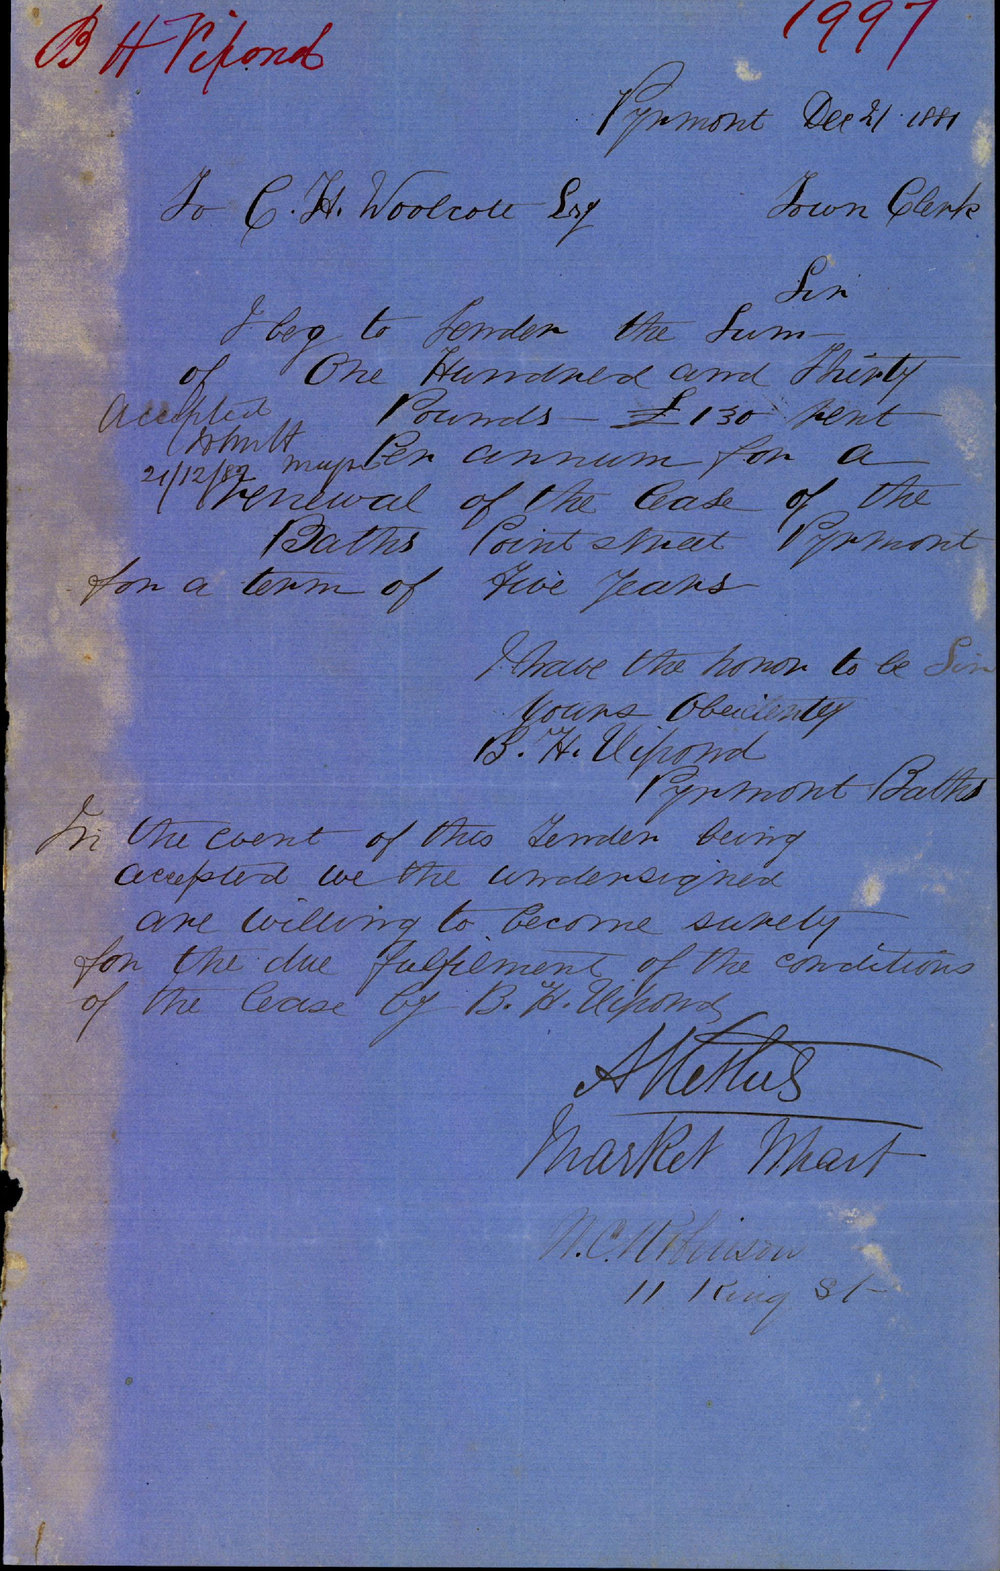 B H Vipond
1997
Pyrmont Dec 21 1881
To C. H. Woolcott Esq Town Clerk
Sir
I beg to Tender the Sum
of One Hundred and Thirty
Pounds £130 rent
Per annum for a
renewal of the lease of the
Baths Point street Pyrmont
for a term of Five years
Accepted
21/12/82
I have the honor to be Sir
yours Obediently
B. H. Vipond
Pyrmont Baths
In the event of this Tender being
accepted we the undersigned
are willing to become surety
for the due fulfilment of the conditions
of the lease by B. H. Vipond
Market Wharf
W. C. Robinson
11 King St